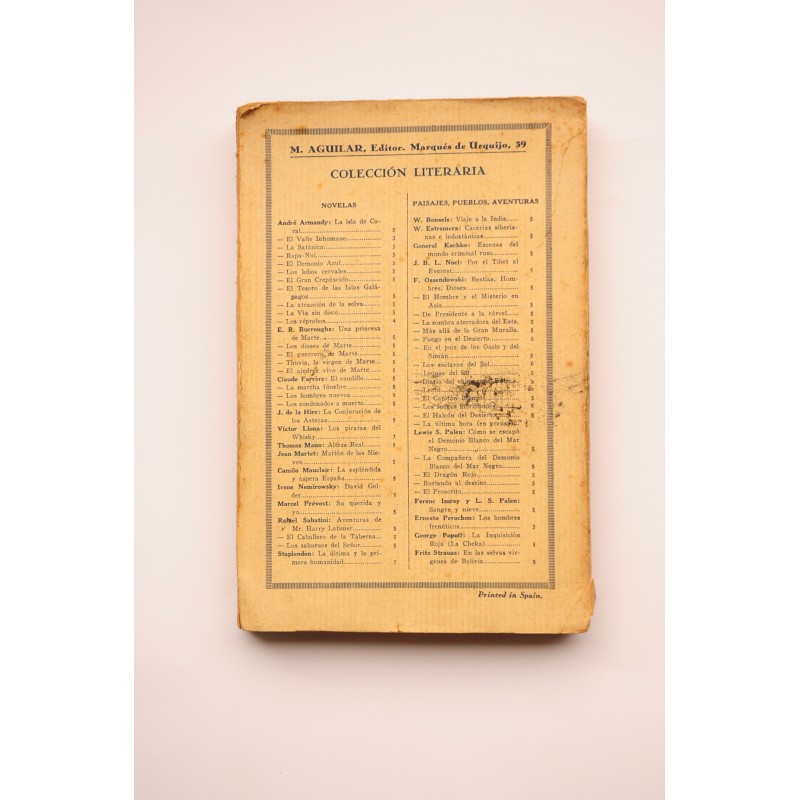 M. AGUILAR, Editor. Marqués de Urquijo, 39
COLECCIÓN LITERARIA
NOVELAS
André Armandy: La isla de Co-
ral 5
— El Valle Inhumano 5
— La Satánica 5
— Rapa-Nui 5
— El Demonio Azul 5
— Los lobos cervales 5
— El Gran Crepúsculo 5
— El Tesoro de las Islas Galá-
pagos 5
— La atracción de la selva 5
— La Vía sin disco 5
— Los réprobos 4
E. R. Burroughs: Una princesa
de Marte 5
— Los dioses de Marte 5
— El guerrero de Marte 5
— Thuvia, la virgen de Marte 5
— El ajedrez vivo de Marte 5
Claude Farrère: El caudillo 5
— La marcha fúnebre 5
— Los hombres nuevos 5
— Los condenados a muerte 5
J. de la Hire: La Conjuración de
los Aztecas 5
Víctor Llona: Los piratas del
Whisky
Thomas Mann: Alteza Real 5
Jean Martet: Marión de las Nie-
ves 5
Camilo Mauclair: La espléndida
y áspera España 5
Irene Nemirowsky: David Gol-
der 5
Marcel Prévost: Su querida y
yo 5
Rafael Sabatini: Aventuras de
Mr. Harry Latimer 5
— El Caballero de la Taberna 5
— Los sabuesos del Señor 5
Stapledon: La última y la pri-
mera humanidad 7
PAISAJES, PUEBLOS, AVENTURAS
W. Bonsels: Viaje a la India 5
W. Estremera: Cacerías siberia-
nas e indostánicas 5
General Kochko: Escenas del
mundo criminal ruso 5
J. B. L. Noel: Por el Tibet al
Everest
F. Ossendowski: Bestias, Hom-
bres, Dioses 5
— El Hombre y el Misterio en
Asia 5
— De Presidente a la cárcel 5
— La sombra aterradora del Este 5
— Más allá de la Gran Muralla 5
— Fuego en el Desierto 5
— En el país de los Oasis y del
Simún 5
— Los esclavos del Sol 5
— Lenguas del
— Diario del
— Lenin
— El Capitán
— Los fuegos
— El Halcón del Desierto
— La última hora (en prensa)
Lewis S. Palen: Cómo se escapó
el Demonio Blanco del Mar
Negro 5
— La Compañera del Demonio
Blanco del Mar Negro 5
— El Dragón Rojo 5
— Burlando al destino 5
— El Proscrito 5
Ferenc Imrey y L. S. Palen:
Sangre y nieve 5
Ernesto Perochon: Los hombres
frenéticos 5
George Popoff: La Inquisición
Roja (La Cheka) 5
Fritz Strauss: En las selvas vír-
genes de Bolivia 5
Printed in Spain.